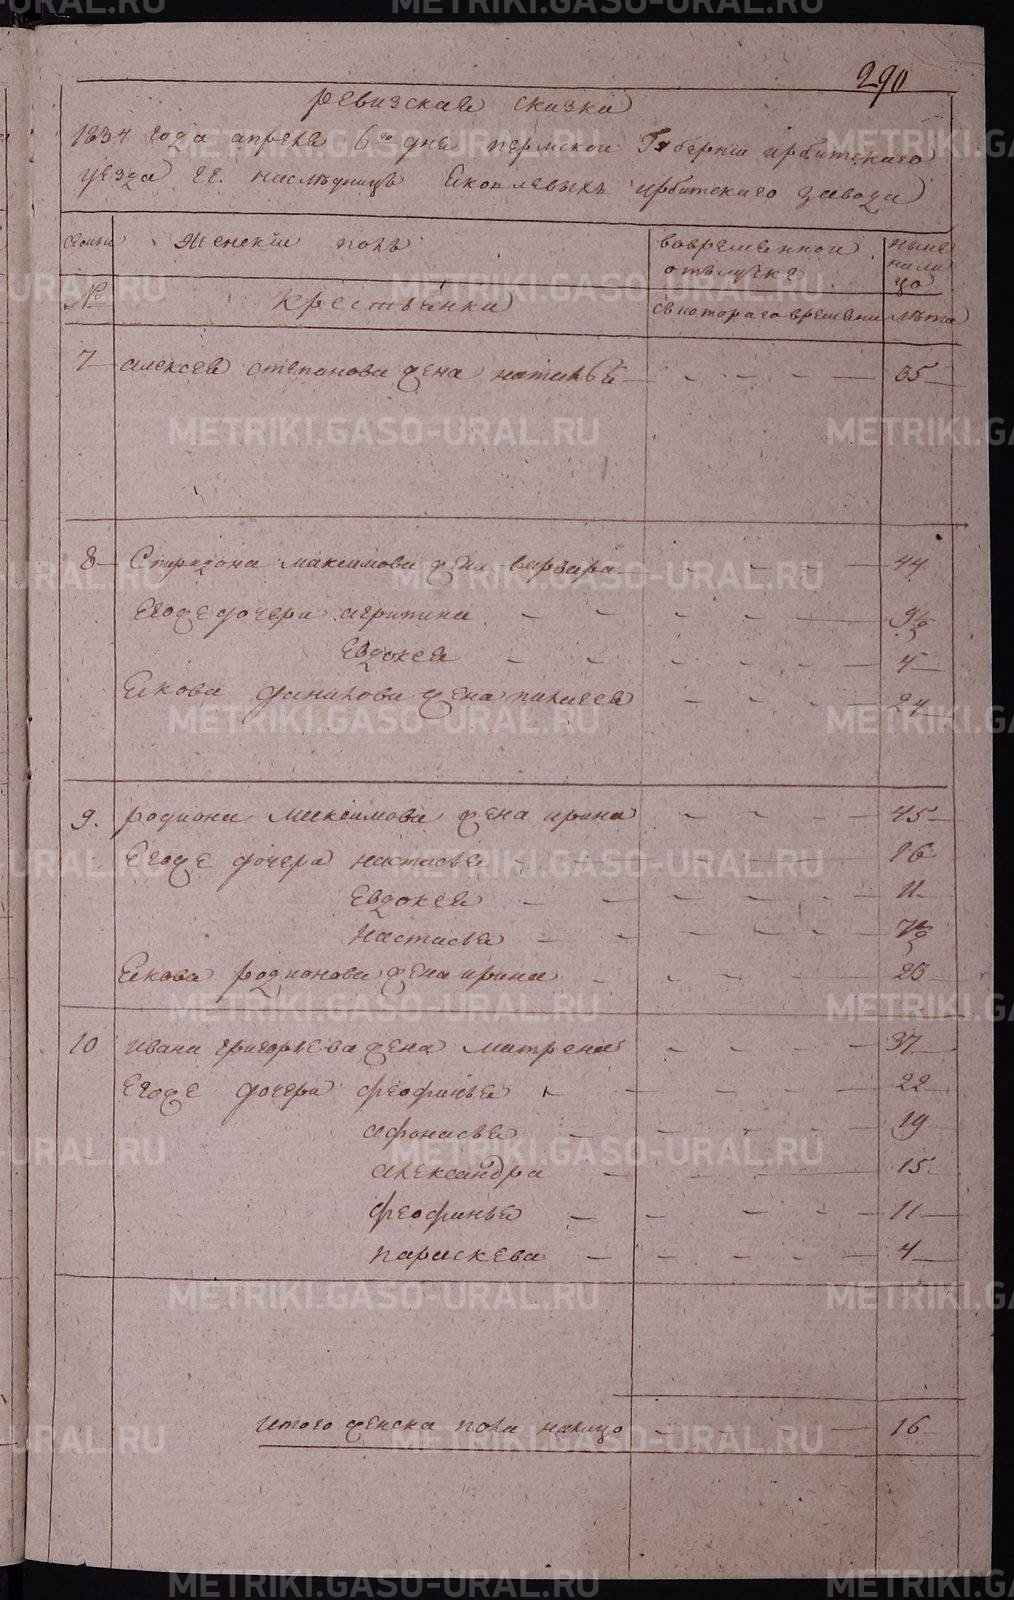 290
ревизская сказка
1834 года апреля 6го дня пермской Губерніи ирбитскаго
уезда гг. наслѣдницъ Яковлевыхъ ирбитскаго завода
семьи Женскій полъ вовременной отълучке ныне налицо
№ Крестьянки съкотораговремени Лѣта
7 алексея степанова жена наталья 35
8 Спиридона максимова жена варвара 44
Егоже дочери агрипина 9½
Евдокея 4
Якова жена палагея 24
9. родиона Максимова жена ирина 45
Егоже дочери настасья 16
Евдокея 11
настасья 7½
Якова родионова жена ирина 23
10 ивана григорьева жена матрена 37
Егоже дочери феофинья 22
афонасья 19
александра 15
феофинья 11
параскева 4
итого женска пола налицо 16
METRIKI.GASO-URAL.RU